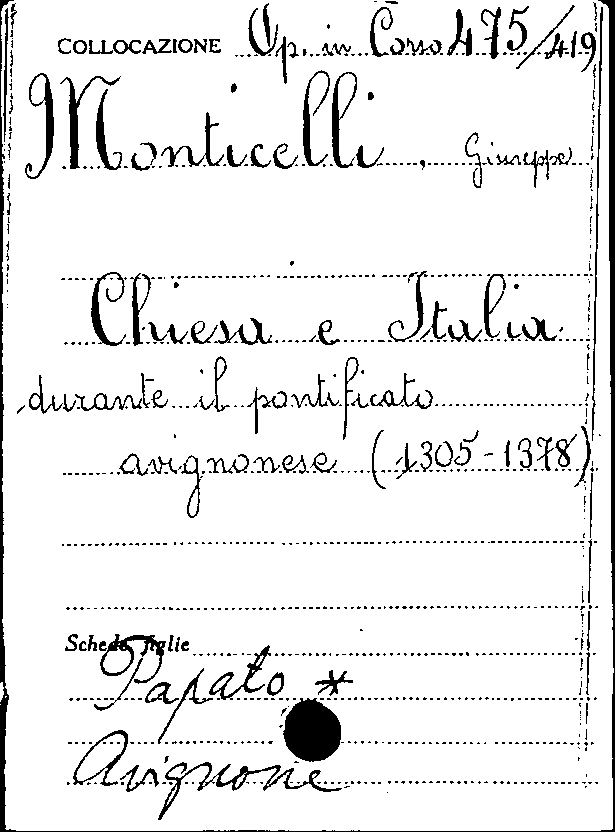 COLLOCAZIONE Op. in Corso 475/419
Monticelli, Giuseppe
Chiesa e Italia
durante il pontificato
avignonese (1305-1378)
Schede figlie
Papato *
Avignone